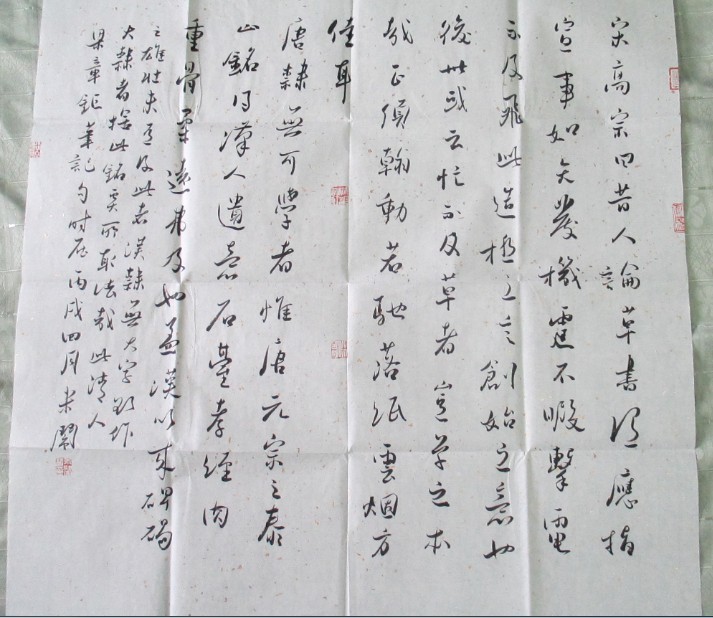 宋高宗曰昔人論草書謂應指
宣事如矢發機霆不暇擊電
不及飛此造極之言創始之意也
後世或云忙不及草者豈草之本
哉正須翰動若馳落紙雲烟方
佳耳
唐隸無可學者惟唐元宗之泰
山銘得漢人遺意石臺孝經肉
重骨柔遠弗及也蓋漢以來碑碣
之雄壯未有及此者漢隸無大字欲作
大隸者捨此銘奚所取法哉此清人
梁章鉅筆記句時丙戌四月米鬧